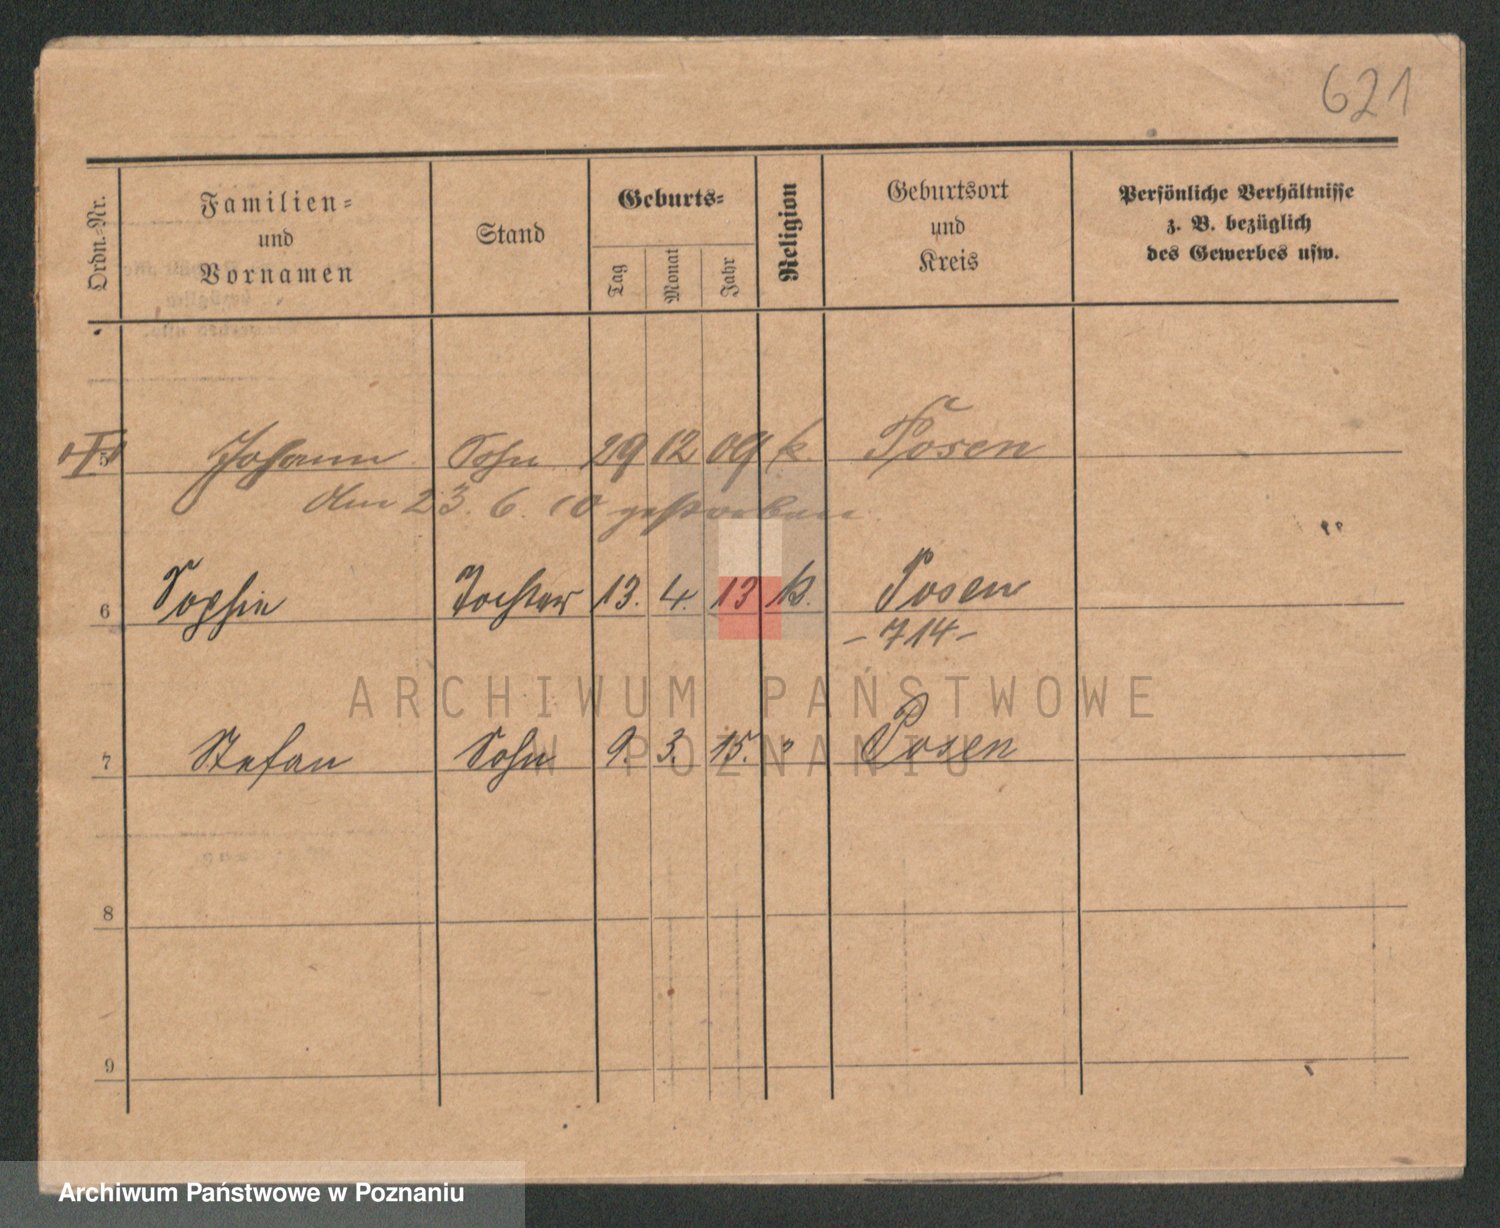 621
Ordn.-Nr.
Familien-
und
Vornamen
Stand
Geburts-
Tag
Monat
Jahr
Religion
Geburtsort
und
Kreis
Persönliche Verhältnisse
z. B. bezüglich
des Gewerbes usw.
5 Johann Sohn 29 12 09 k Posen
am 23. 6. 10 gestorben
6 Sophie Tochter 13. 4. 13 k. Posen
- 714 -
7 Stefan Sohn 9. 3. 15. " Posen
8
9
ARCHIWUM PAŃSTWOWE
W POZNANIU
Archiwum Państwowe w Poznaniu